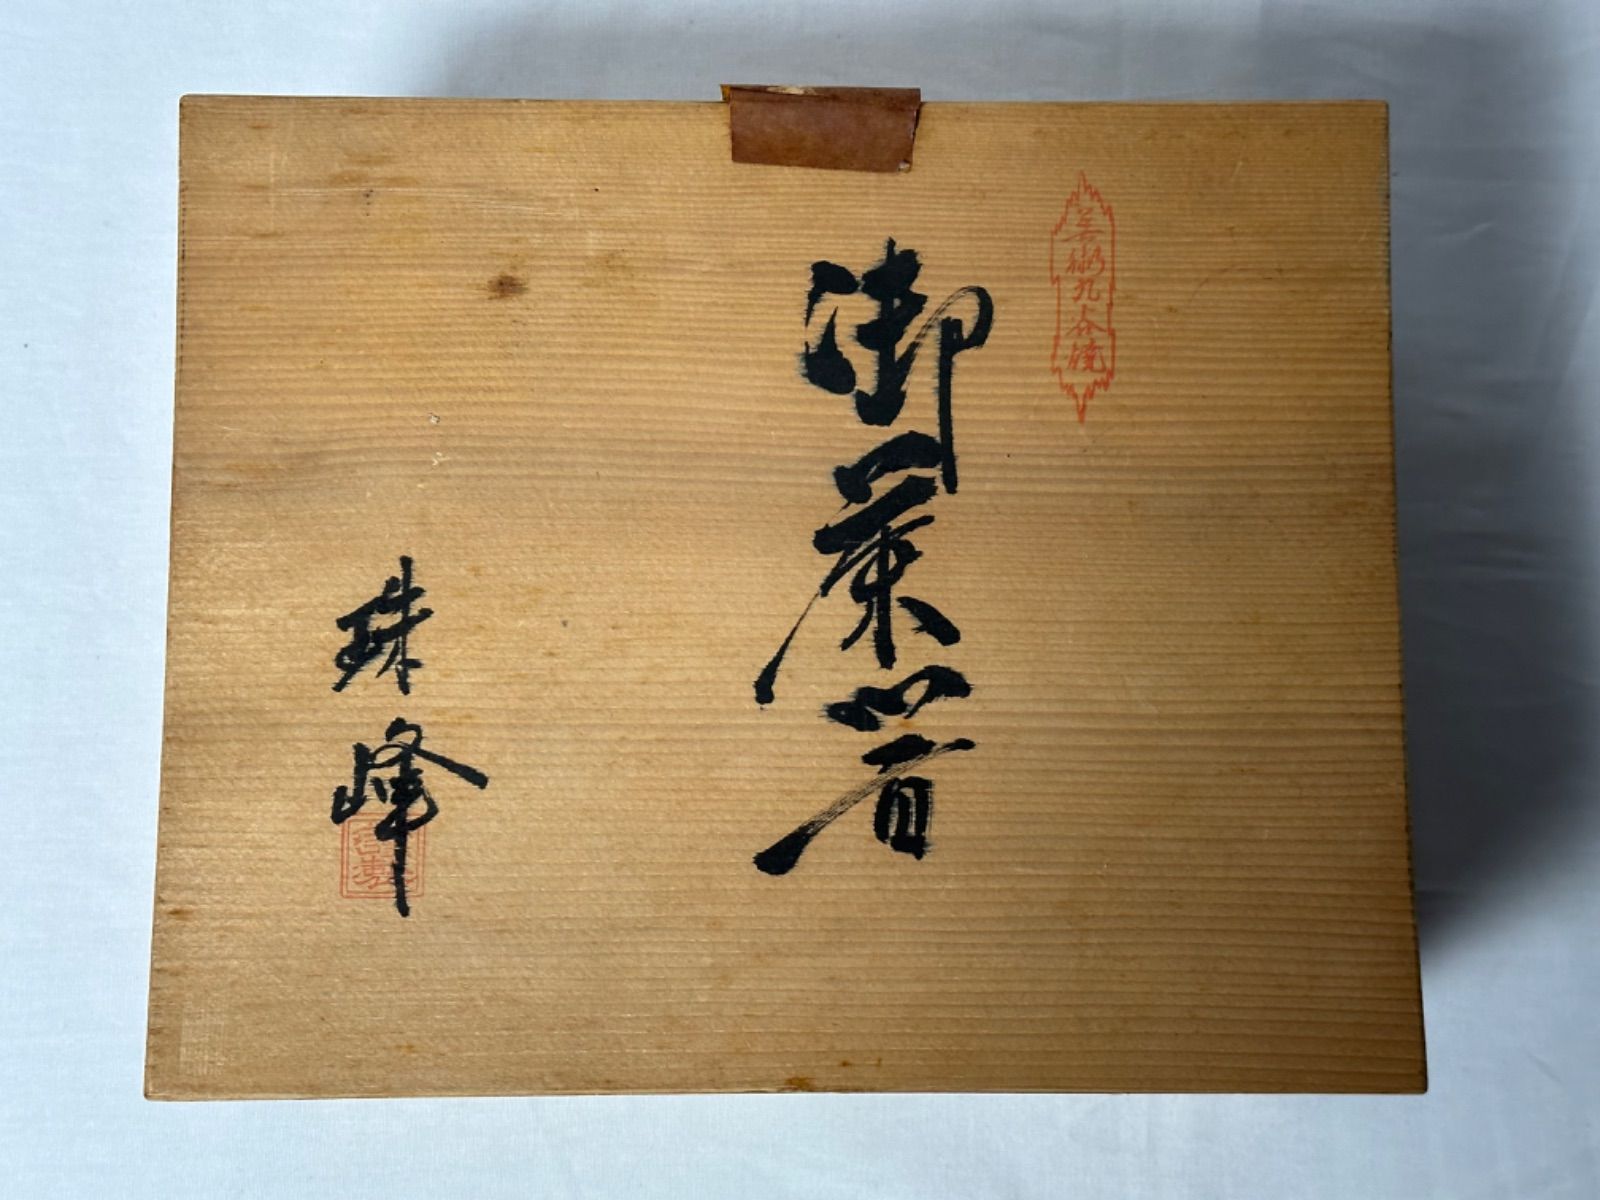 美術九谷焼
御茶器
珠峰